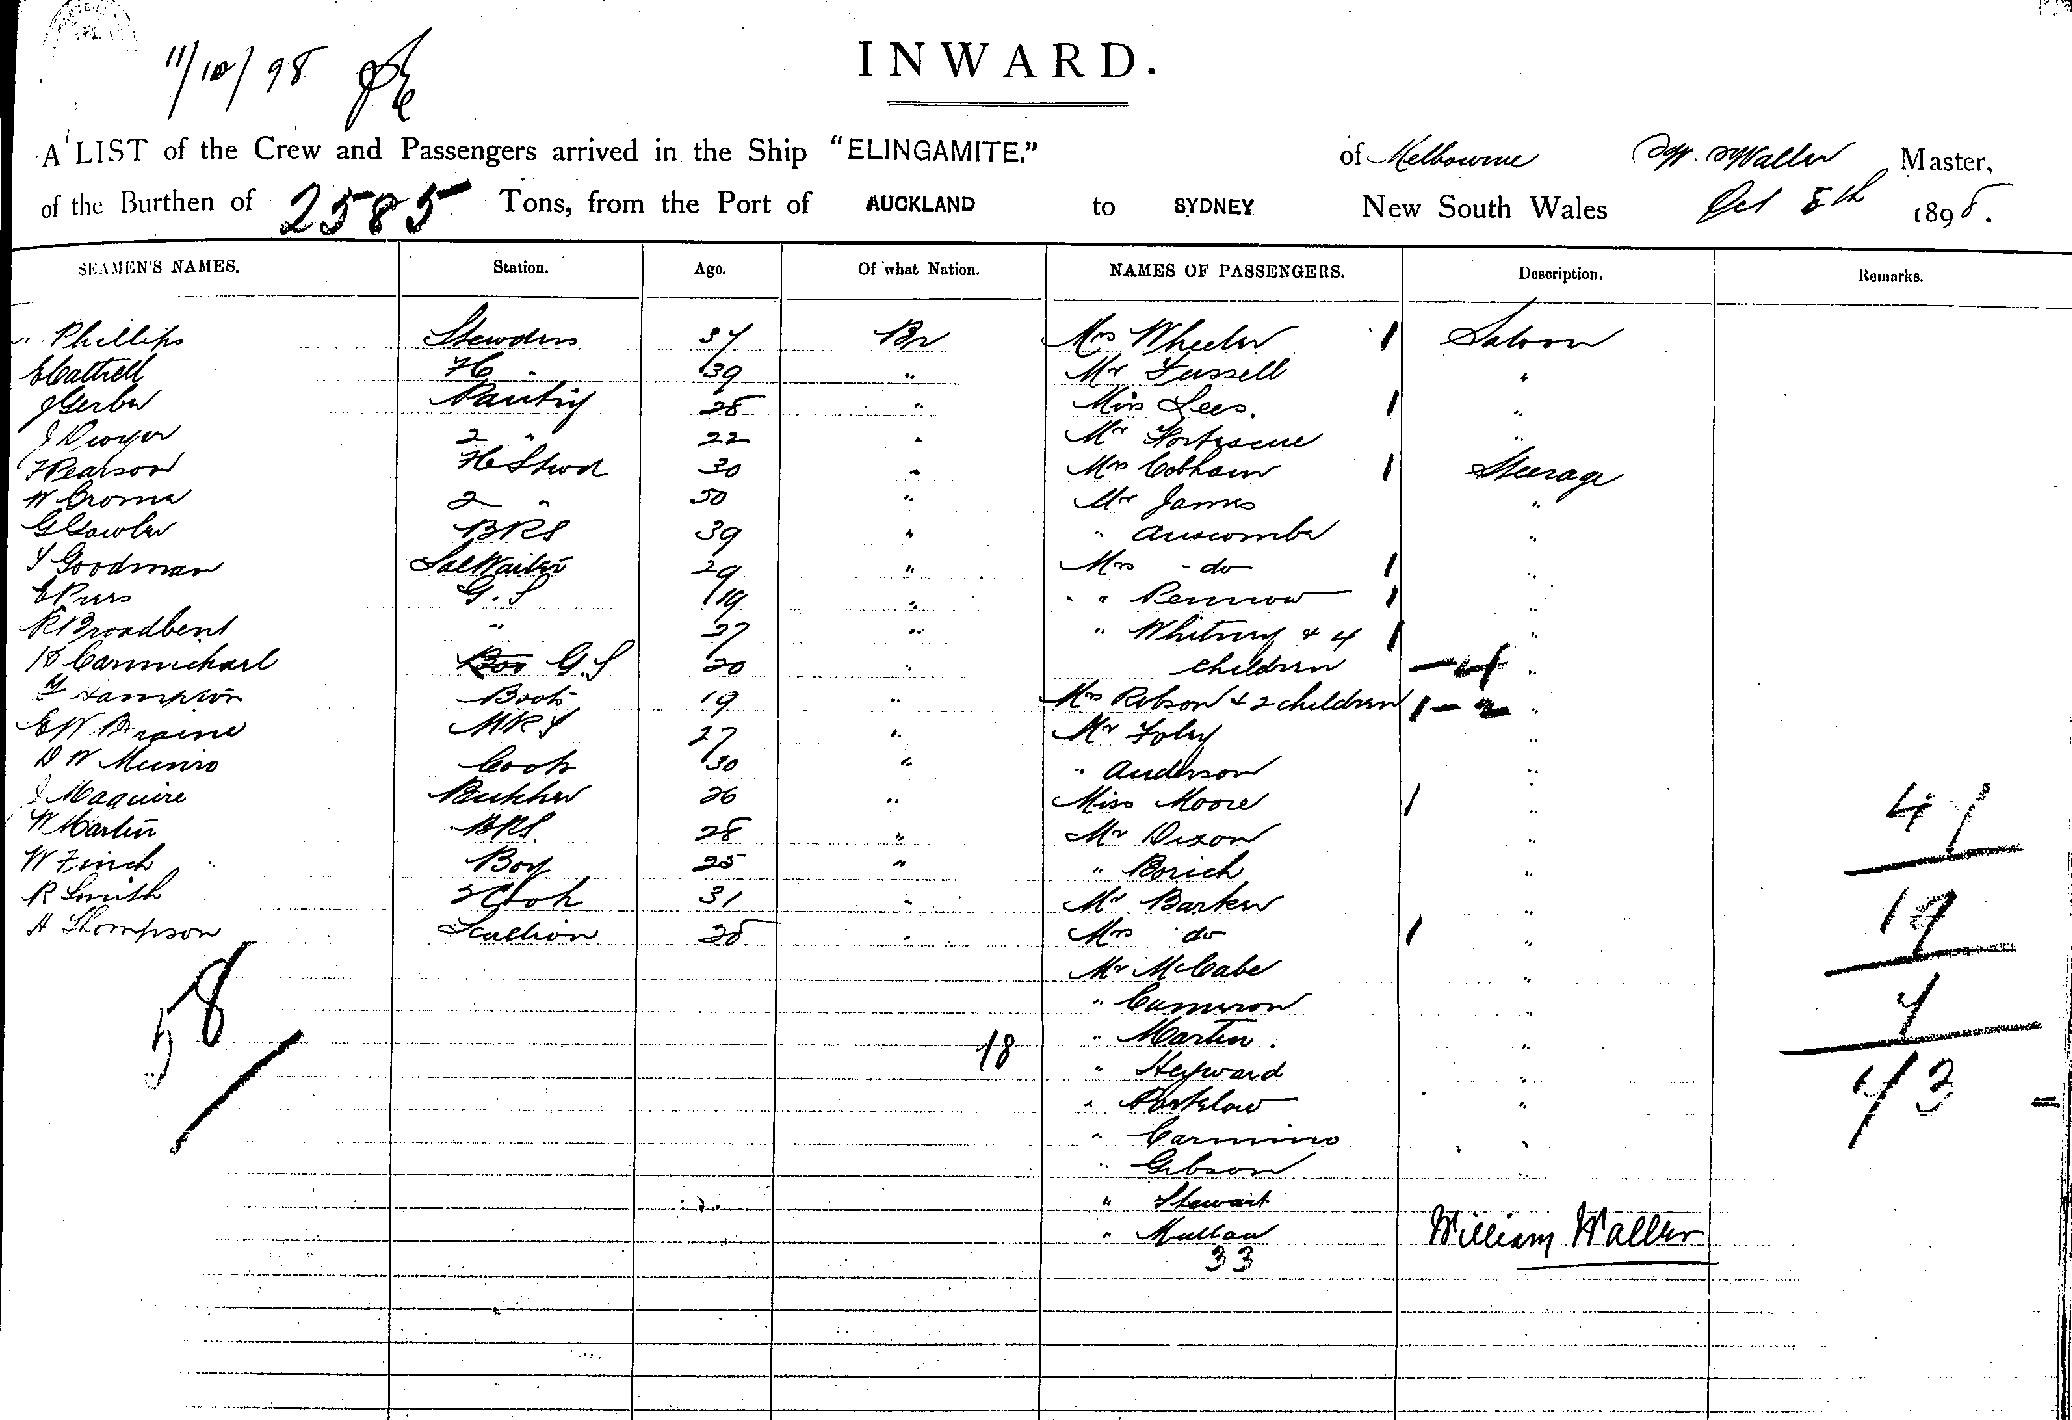 11/10/98
INWARD.
A LIST of the Crew and Passengers arrived in the Ship "ELINGAMITE." of Melbourne W. Waller Master,
of the Burthen of 2585 Tons, from the Port of AUCKLAND to SYDNEY New South Wales Oct 8th 1898.
SEAMEN'S NAMES. Station. Age. Of what Nation. NAMES OF PASSENGERS. Description. Remarks.
" Phillips 37 Br Mrs Wheeler 1 Saloon
E Cattrell " 39 " Mr Fussell "
J Gerber Pantry 28 " Miss Lees. 1 "
J Dwyer 2 " 22 " Mr Fortescue "
F Pearson 30 " Mrs Cobham 1 Steerage
W Croma 2 " 50 " Mr James "
G Gawler BRS 39 " " Auscombe "
S Goodman Sal Waiter 29 " Mrs - do 1 "
E Piers G.S 19 " " " Rennow 1 "
R Broadbent " 27 " " Whitney & 4 1 "
H Carmichael G.S 20 " children - 4 "
Hampton Boots 19 " Mrs Robson & 2 children 1 - 2 "
E W Braine MRS 27 " Mr Foley "
D W Munro Cook 30 " " Anderson "
J Maguire Butcher 26 " Miss Moore 1 "
W Martin BRS. 28 " Mr Dixon "
W Finch Boy 25 " " Borich "
R Smith 2 Cook 31 " Mr Barker "
A Thompson Scullion 28 " Mrs do 1 "
Mr McCabe "
" Cameron "
" Martin. "
" Heyward "
" "
" "
" Gibson "
" Stewart
" Mullan William Waller
33
58
18
19
43